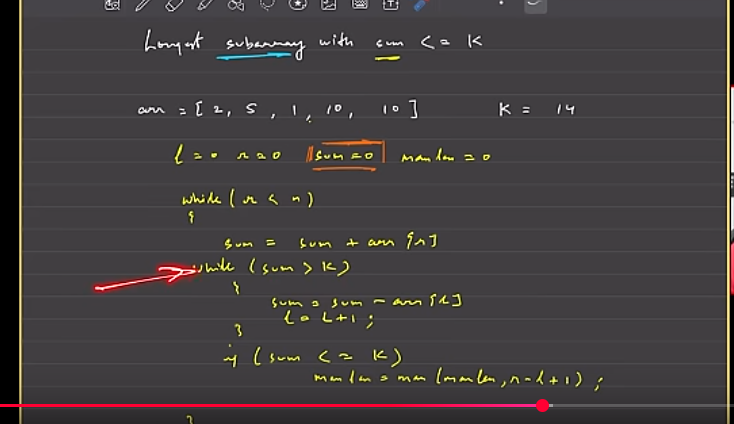 Longest subarray with sum <= K
arr = [ 2, 5, 1, 10, 10 ] K = 14
l = 0 r = 0 sum = 0 maxlen = 0
while ( r < n )
{
sum = sum + arr [r]
while ( sum > K )
{
sum = sum - arr [l]
l = l + 1 ;
}
if ( sum <= K )
maxlen = max (maxlen, r-l+1) ;
}